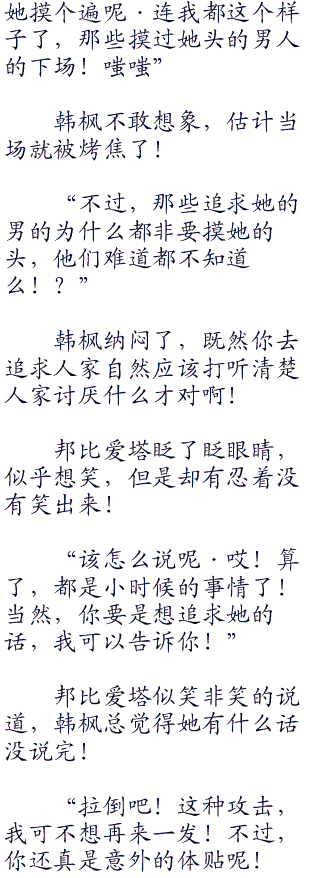 她摸个遍呢·连我都这个样
子了，那些摸过她头的男人
的下场！嗤嗤”
韩枫不敢想象，估计当
场就被烤焦了！
“不过，那些追求她的
男的为什么都非要摸她的
头，他们难道都不知道
么！？”
韩枫纳闷了，既然你去
追求人家自然应该打听清楚
人家讨厌什么才对啊！
邦比爱塔眨了眨眼睛，
似乎想笑，但是却有忍着没
有笑出来！
“该怎么说呢·哎！算
了，都是小时候的事情了！
当然，你要是想追求她的
话，我可以告诉你！”
邦比爱塔似笑非笑的说
道，韩枫总觉得她有什么话
没说完！
“拉倒吧！这种攻击，
我可不想再来一发！不过，
你还真是意外的体贴呢！